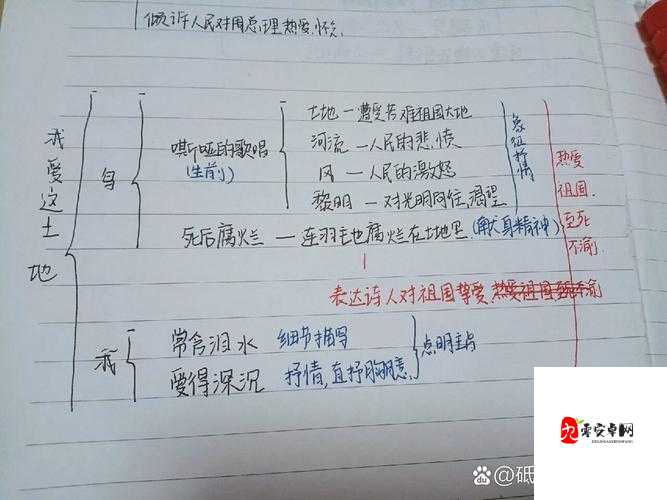 倾诉人民对周总理热爱、怀念
我爱这土地
鸟
嘶哑的歌唱
(生前)
土地 — 遭受苦难祖国大地
河流 — 人民的悲愤
风 — 人民的激怒
黎明 — 对光明向往,渴望
象征抒情
死后腐烂 — 连羽毛也腐烂在土地里.(献身精神)
热爱
祖国,
至死
不渝.
表达诗人对祖国挚爱,热爱祖国至死不渝
我
常含泪水 细节描写
爱得深沉 抒情,直抒胸臆
点明主旨
零安卓网